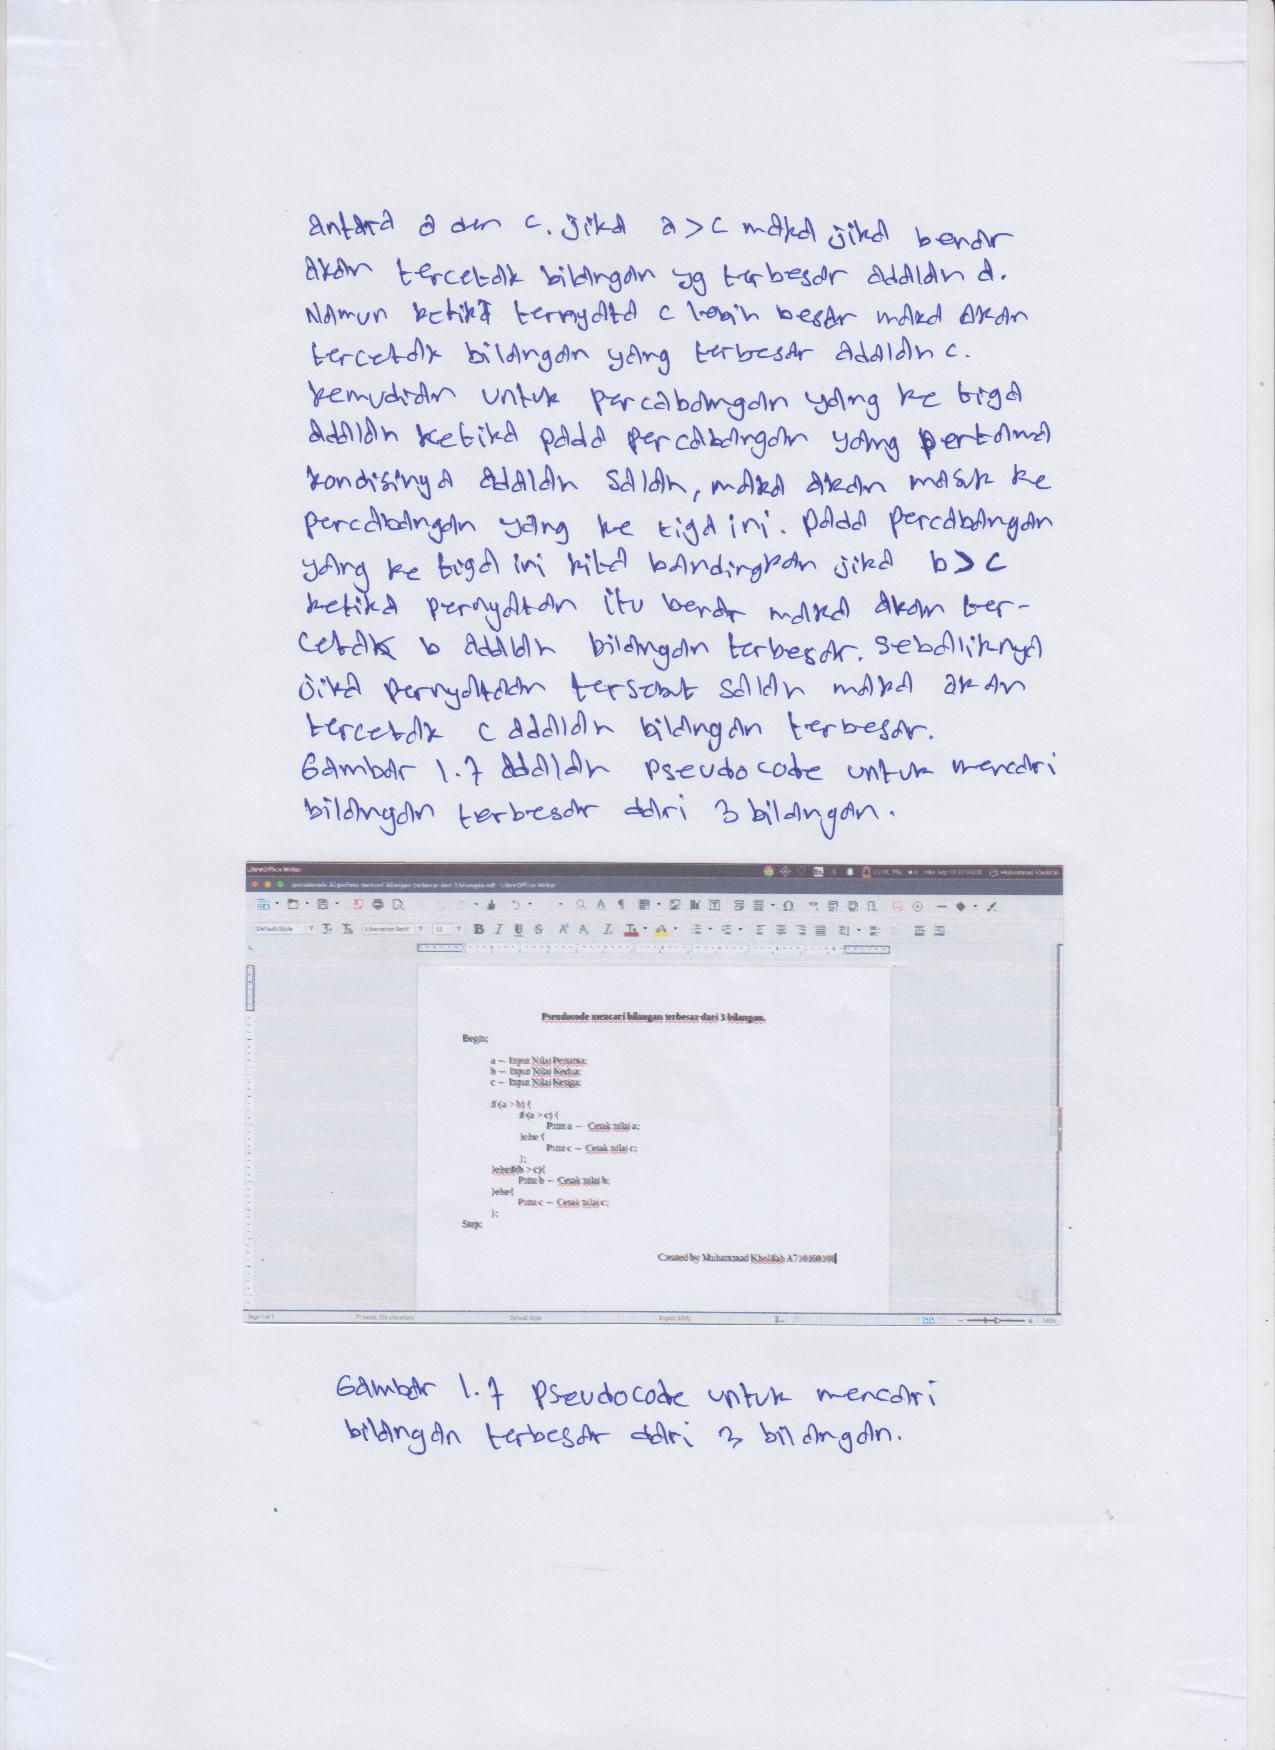 antara a dan c. jika a > c maka jika benar
akan tercetak bilangan yg terbesar adalah a.
Namun ketika ternyata c lebih besar maka akan
tercetak bilangan yang terbesar adalah c.
kemudian untuk percabangan yang ke tiga
adalah ketika pada percabangan yang pertama
kondisinya adalah salah, maka akan masuk ke
percabangan yang ke tiga ini. pada percabangan
yang ke tiga ini kita bandingkan jika b > c
ketika pernyatan itu benar maka akan ter-
cetak b adalah bilangan terbesar. sebaliknya
jika pernyataan tersebut salah maka akan
tercetak c adalah bilangan terbesar.
Gambar 1.7 adalah pseudocode untuk mencari
bilangan terbesar dari 3 bilangan.
LibreOffice Writer
pseudocode Algoritma mencari bilangan terbesar dari 3 bilangan.odt - LibreOffice Writer
Default Style Liberation Serif 12
Pseudocode mencari bilangan terbesar dari 3 bilangan.
Begin;
a — Input Nilai Pertama;
b — Input Nilai Kedua;
c — Input Nilai Ketiga;
if (a > b) {
if (a > c) {
Print a — Cetak nilai a;
}else {
Print c — Cetak nilai c;
};
}elseif(b > c){
Print b — Cetak nilai b;
}else{
Print c — Cetak nilai c;
};
Stop;
Created by Muhammad Kholifah
Page 1 of 1 Default Style 140%
Gambar 1.7 pseudocode untuk mencari
bilangan terbesar dari 3 bilangan.